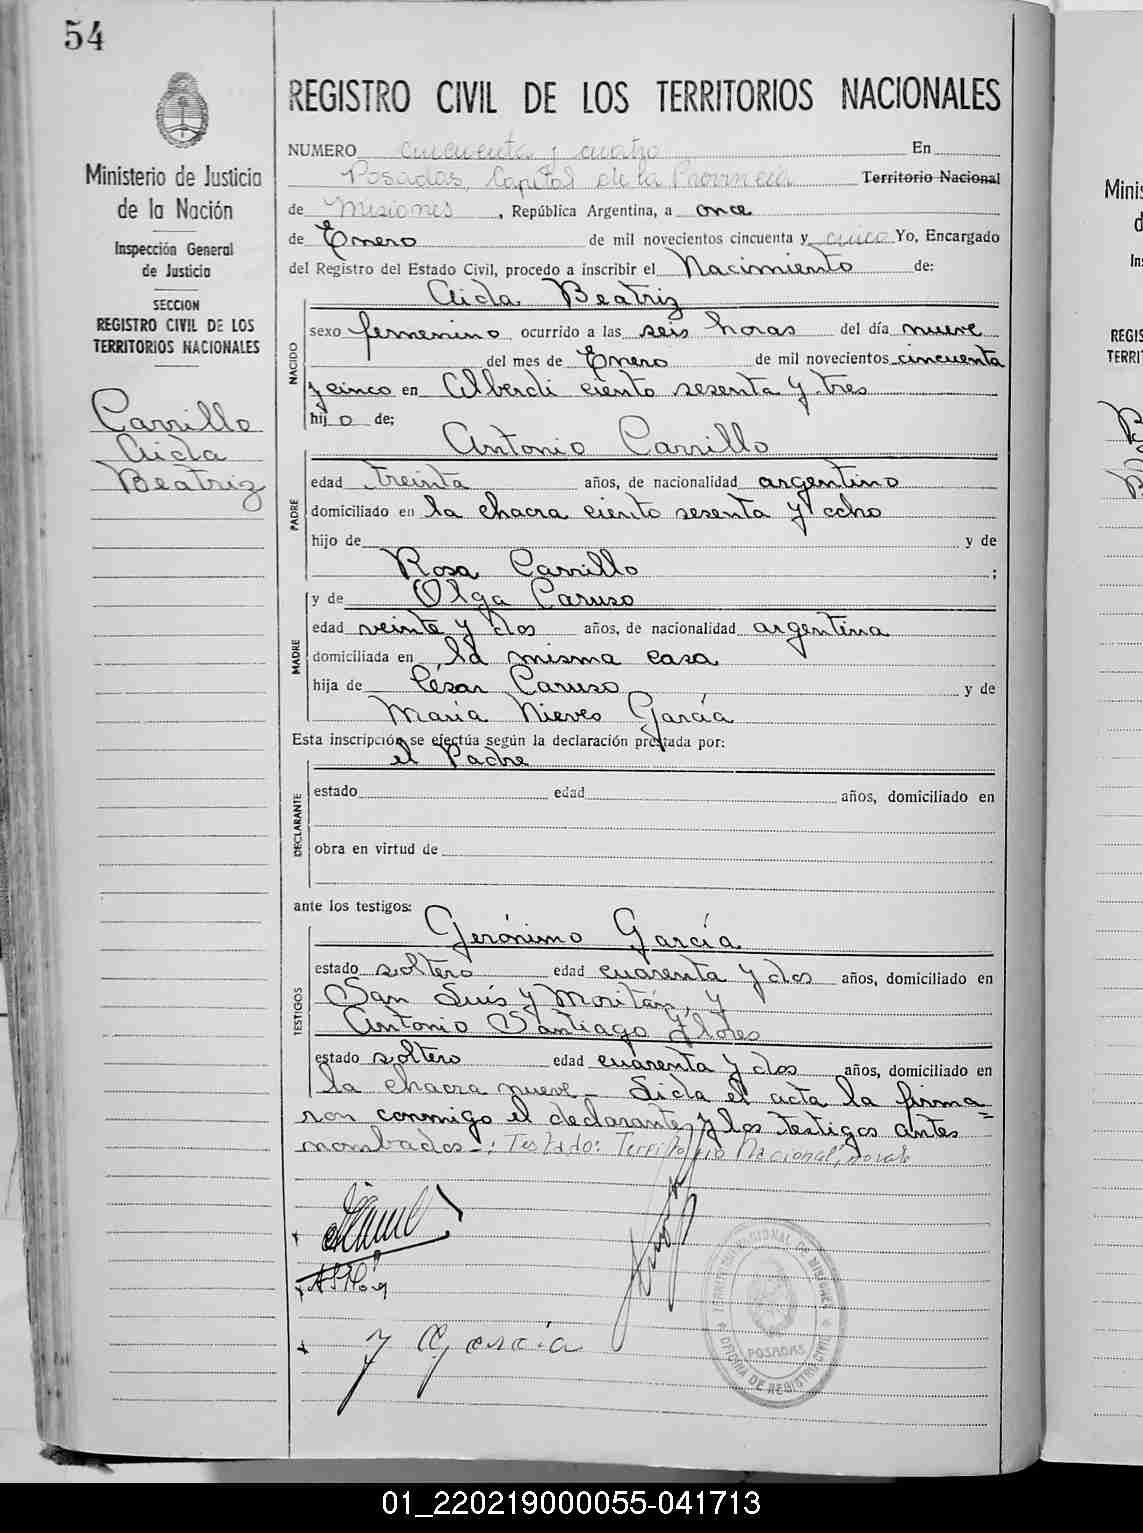 54
Ministerio de Justicia
de la Nación
Inspección General
de Justicia
SECCION
REGISTRO CIVIL DE LOS
TERRITORIOS NACIONALES
Carrillo
Aida
Beatriz
REGISTRO CIVIL DE LOS TERRITORIOS NACIONALES
NUMERO cincuenta y cuatro En
Posadas, Capital de la Provincia Territorio Nacional
de Misiones, República Argentina, a once
de Enero de mil novecientos cincuenta y cinco Yo, Encargado
del Registro del Estado Civil, procedo a inscribir el Nacimiento de:
Aida Beatriz
NACIDO
sexo femenino ocurrido a las seis horas del día nueve
del mes de Enero de mil novecientos cincuenta
y cinco en Alberdi ciento sesenta y tres
hijo de:
Antonio Carrillo
PADRE
edad treinta años, de nacionalidad argentino
domiciliado en la chacra ciento sesenta y ocho
hijo de y de
Rosa Carrillo ;
y de Olga Caruso
MADRE
edad veinte y dos años, de nacionalidad argentina
domiciliada en la misma casa
hija de César Caruso y de
María Nieves García
Esta inscripción se efectúa según la declaración prestada por:
el Padre
DECLARANTE
estado edad años, domiciliado en
obra en virtud de
ante los testigos:
Gerónimo García
TESTIGOS
estado soltero edad cuarenta y dos años, domiciliado en
San Luís y Moritán, y
Antonio Santiago Flores
estado soltero edad cuarenta y dos años, domiciliado en
la chacra nueve - Lida el acta la firma=
ron conmigo el declarante y los testigos antes
nombrados-; Testado: Territorio Nacional; no vale
J García
TERRITORIO NACIONAL DE MISIONES
POSADAS
OFICINA DE REGISTRO CIVIL
Minis
d
Ins
REGIS
TERRI
01_220219000055-041713